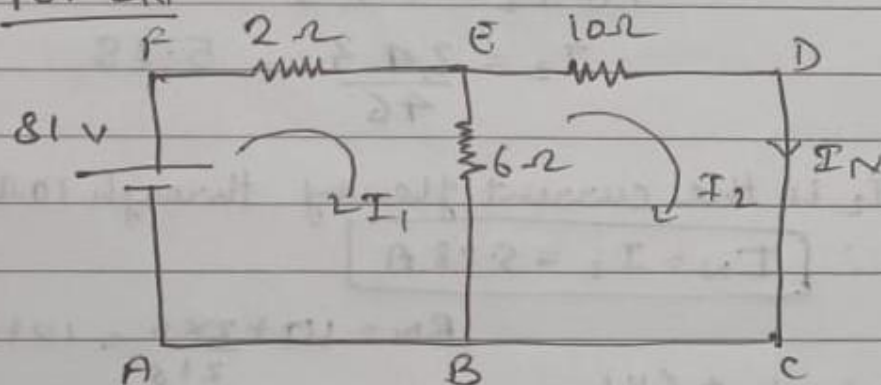 F 2Ω E 10Ω D
81 V
6Ω
I₁
I₂
I N
A B C